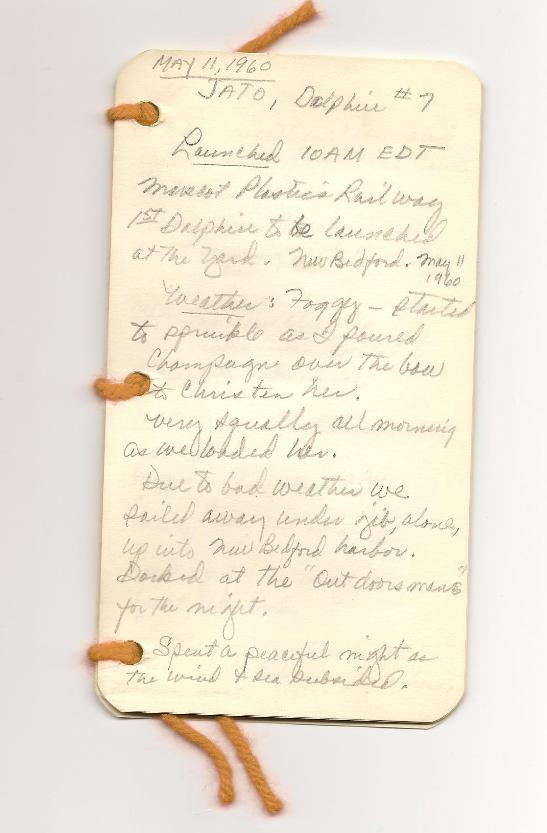 MAY 11, 1960
JATO, Dolphin #7
Launched 10AM EDT
Marscot Plastics Railway
1ST Dolphin to be launched
at the Yard. New Bedford. May 11
1960
Weather: Foggy - started
to sprinkle as I poured
Champagne over the bow
to Christen her.
Very squally all morning
as we loaded her.
Due to bad weather we
sailed away under jib, alone,
up into New Bedford harbor.
Docked at the "Outdoorsman's"
for the night.
Spent a peaceful night as
the wind & sea subsided.